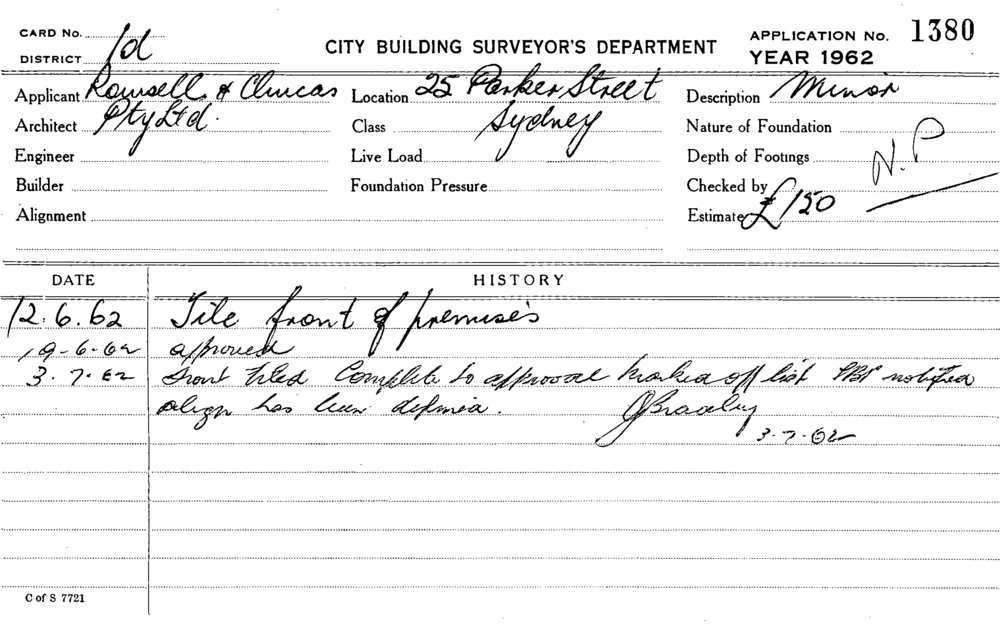 CARD No.
DISTRICT 1d
CITY BUILDING SURVEYOR'S DEPARTMENT
APPLICATION No. 1380
YEAR 1962
Applicant Rowsell & Clucas
Architect Pty Ltd.
Engineer
Builder
Alignment
Location 25 Parker Street
Class Sydney
Live Load
Foundation Pressure
Description Minor
Nature of Foundation
Depth of Footings N.P
Checked by
Estimate £150
DATE HISTORY
12.6.62 Tile front of premises
19-6-62 approved
3.7.62 Front tiled Complete to approval marked off list notified
align has been defined.
3-7-62
C of S 7721